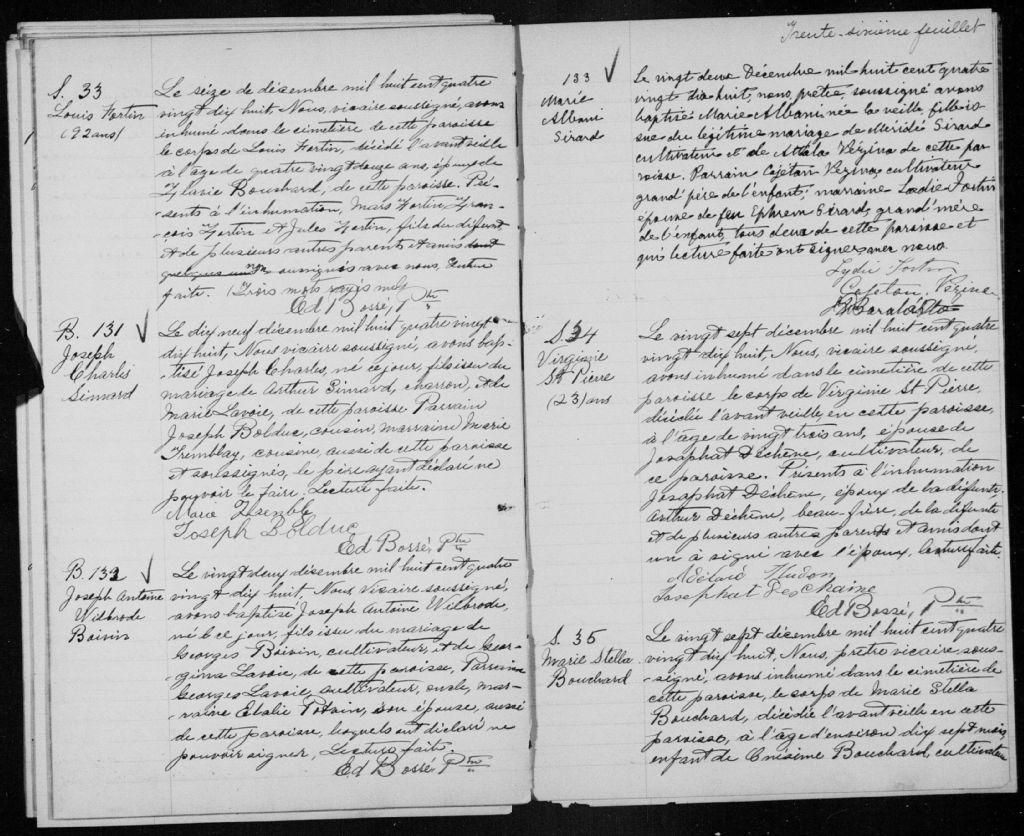 S. 33
Louis Fortin
(92 ans)
Le seize de décembre mil huit cent quatre
vingt dix huit, Nous, vicaire soussigné, avons
inhumé dans le cimetière de cette paroisse
le corps de Louis Fortin, décédé l'avant veille
à l'âge de quatre vingt douze ans, époux de
Flavie Bouchard, de cette paroisse. Pré-
-sents à l'inhumation, Mars Fortin, Fran-
çois Fortin et Jules Fortin, fils du défunt,
et de plusieurs autres parents et amis dont
quelques soussignés avec nous, Lecture
faite. (Trois mots rayés nuls
Ed Bossé, Ptre
B. 131 √
Joseph
Charles
Simard
Le dix neuf décembre mil huit quatre vingt
dix huit, Nous vicaire soussigné, avons bap-
-tisé Joseph Charles, né ce jour, fils issu du
mariage de Arthur Simard, charron, et de
Marie Lavoie, de cette paroisse. Parrain
Joseph Bolduc, cousin, marraine Marie
Tremblay, cousine, aussi de cette paroisse
et soussignés, le père ayant déclaré ne
pouvoir le faire; Lecture faite.
Marie
Joseph Bolduc
Ed Bossé, Ptre
B. 132 √
Joseph Antoine
Wilbrode
Boivin
Le vingt deux décembre mil huit cent quatre
vingt dix huit, Nous Vicaire soussigné,
avons baptisé Joseph Antoine Wilbrode,
né ce jour, fils issu du mariage de
Georges Boivin, cultivateur, et de Geor-
gina Lavoie, de cette paroisse, Parrain
Georges Lavoie, cultivateur, oncle, mar-
raine Potvin, son épouse, aussi
de cette paroisse, lesquels ont déclaré ne
pouvoir signer, Lecture faite.
Ed Bossé Ptre
Trente-sixième feuillet
133 √
Marie
Albani
Girard
Le vingt deux Décembre mil huit cent quatre
vingt dix huit, nous, prêtre soussigné avons
baptisé Marie Albani née la veille, fille is-
sue du légitime mariage de Méridé Girard
cultivateur et de Attala Vézina de cette par
roisse. Parrain Cajetan Vézina, cultivateur
grand'père de l'enfant; marraine Lydie Fortin
épouse de feu Ephrem Girard, grand'mère
de l'enfant, tous deux de cette paroisse et
qui lecture faite ont signé avec nous.
Lydie Fortin
Cajetan Vézina
S. 34
Virginie
St Pierre
(23) ans
Le vingt sept décembre mil huit cent quatre
vingt dix huit, Nous, vicaire soussigné,
avons inhumé dans le cimetière de cette
paroisse le corps de Virginie St Pierre,
décédée l'avant veille, en cette paroisse,
à l'âge de vingt trois ans, épouse de
Josaphat Déchêne, cultivateur, de
ce paroisse. Présents à l'inhumation
Josaphat Déchêne, époux de la défunte,
Arthur Déchêne, beau-frère, de la défunte
et de plusieurs autres parents et amis dont
un a signé avec l'époux, lecture faite.
Adélard Hudon
Josephat DesChaine
Ed Bossé, Ptre
S. 35
Marie Stella
Bouchard
Le vingt sept décembre mil huit cent quatre
vingt dix huit, Nous, prêtre vicaire sous-
signé, avons inhumé dans le cimetière de
cette paroisse, le corps de Marie Stella
Bouchard, décédée l'avant veille en cette
paroisse, à l'âge d'environ dix sept mois,
enfant de Onésime Bouchard, cultivateur